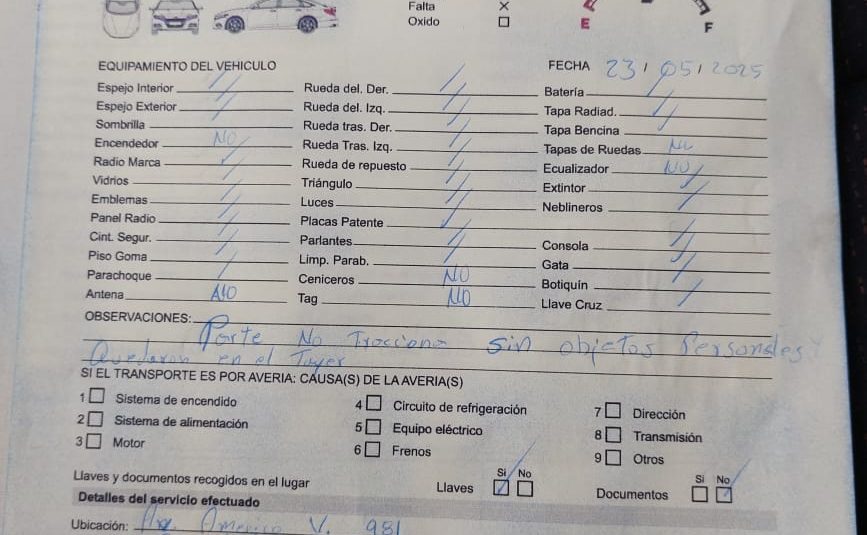 Falta ×
Oxido ☐
E F
EQUIPAMIENTO DEL VEHICULO FECHA 23 / 05 / 2025
Espejo Interior / Rueda del. Der. / Batería /
Espejo Exterior / Rueda del. Izq. / Tapa Radiad. /
Sombrilla / Rueda tras. Der. / Tapa Bencina /
Encendedor NO Rueda Tras. Izq. / Tapas de Ruedas NO
Radio Marca / Rueda de repuesto / Ecualizador NO
Vidrios / Triángulo / Extintor /
Emblemas / Luces / Neblineros /
Panel Radio / Placas Patente /
Cint. Segur. / Parlantes / Consola /
Piso Goma / Limp. Parab. / Gata /
Parachoque / Ceniceros NO Botiquín /
Antena NO Tag NO Llave Cruz /
OBSERVACIONES: Parte No Tracciona sin objetos Personales
Quedaron en el Tayer
SI EL TRANSPORTE ES POR AVERIA: CAUSA(S) DE LA AVERIA(S)
1 ☐ Sistema de encendido 4 ☐ Circuito de refrigeración 7 ☐ Dirección
2 ☐ Sistema de alimentación 5 ☐ Equipo eléctrico 8 ☐ Transmisión
3 ☐ Motor 6 ☐ Frenos 9 ☐ Otros
Si No Si No
Llaves y documentos recogidos en el lugar Llaves ☑ ☐ Documentos ☐ ☑
Detalles del servicio efectuado
Ubicación: Americo V. 981